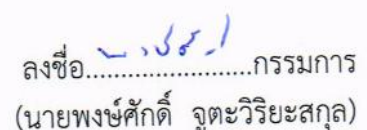 ลงชื่อ........................กรรมการ
(นายพงษ์ศักดิ์ จูตะวิริยะสกุล)